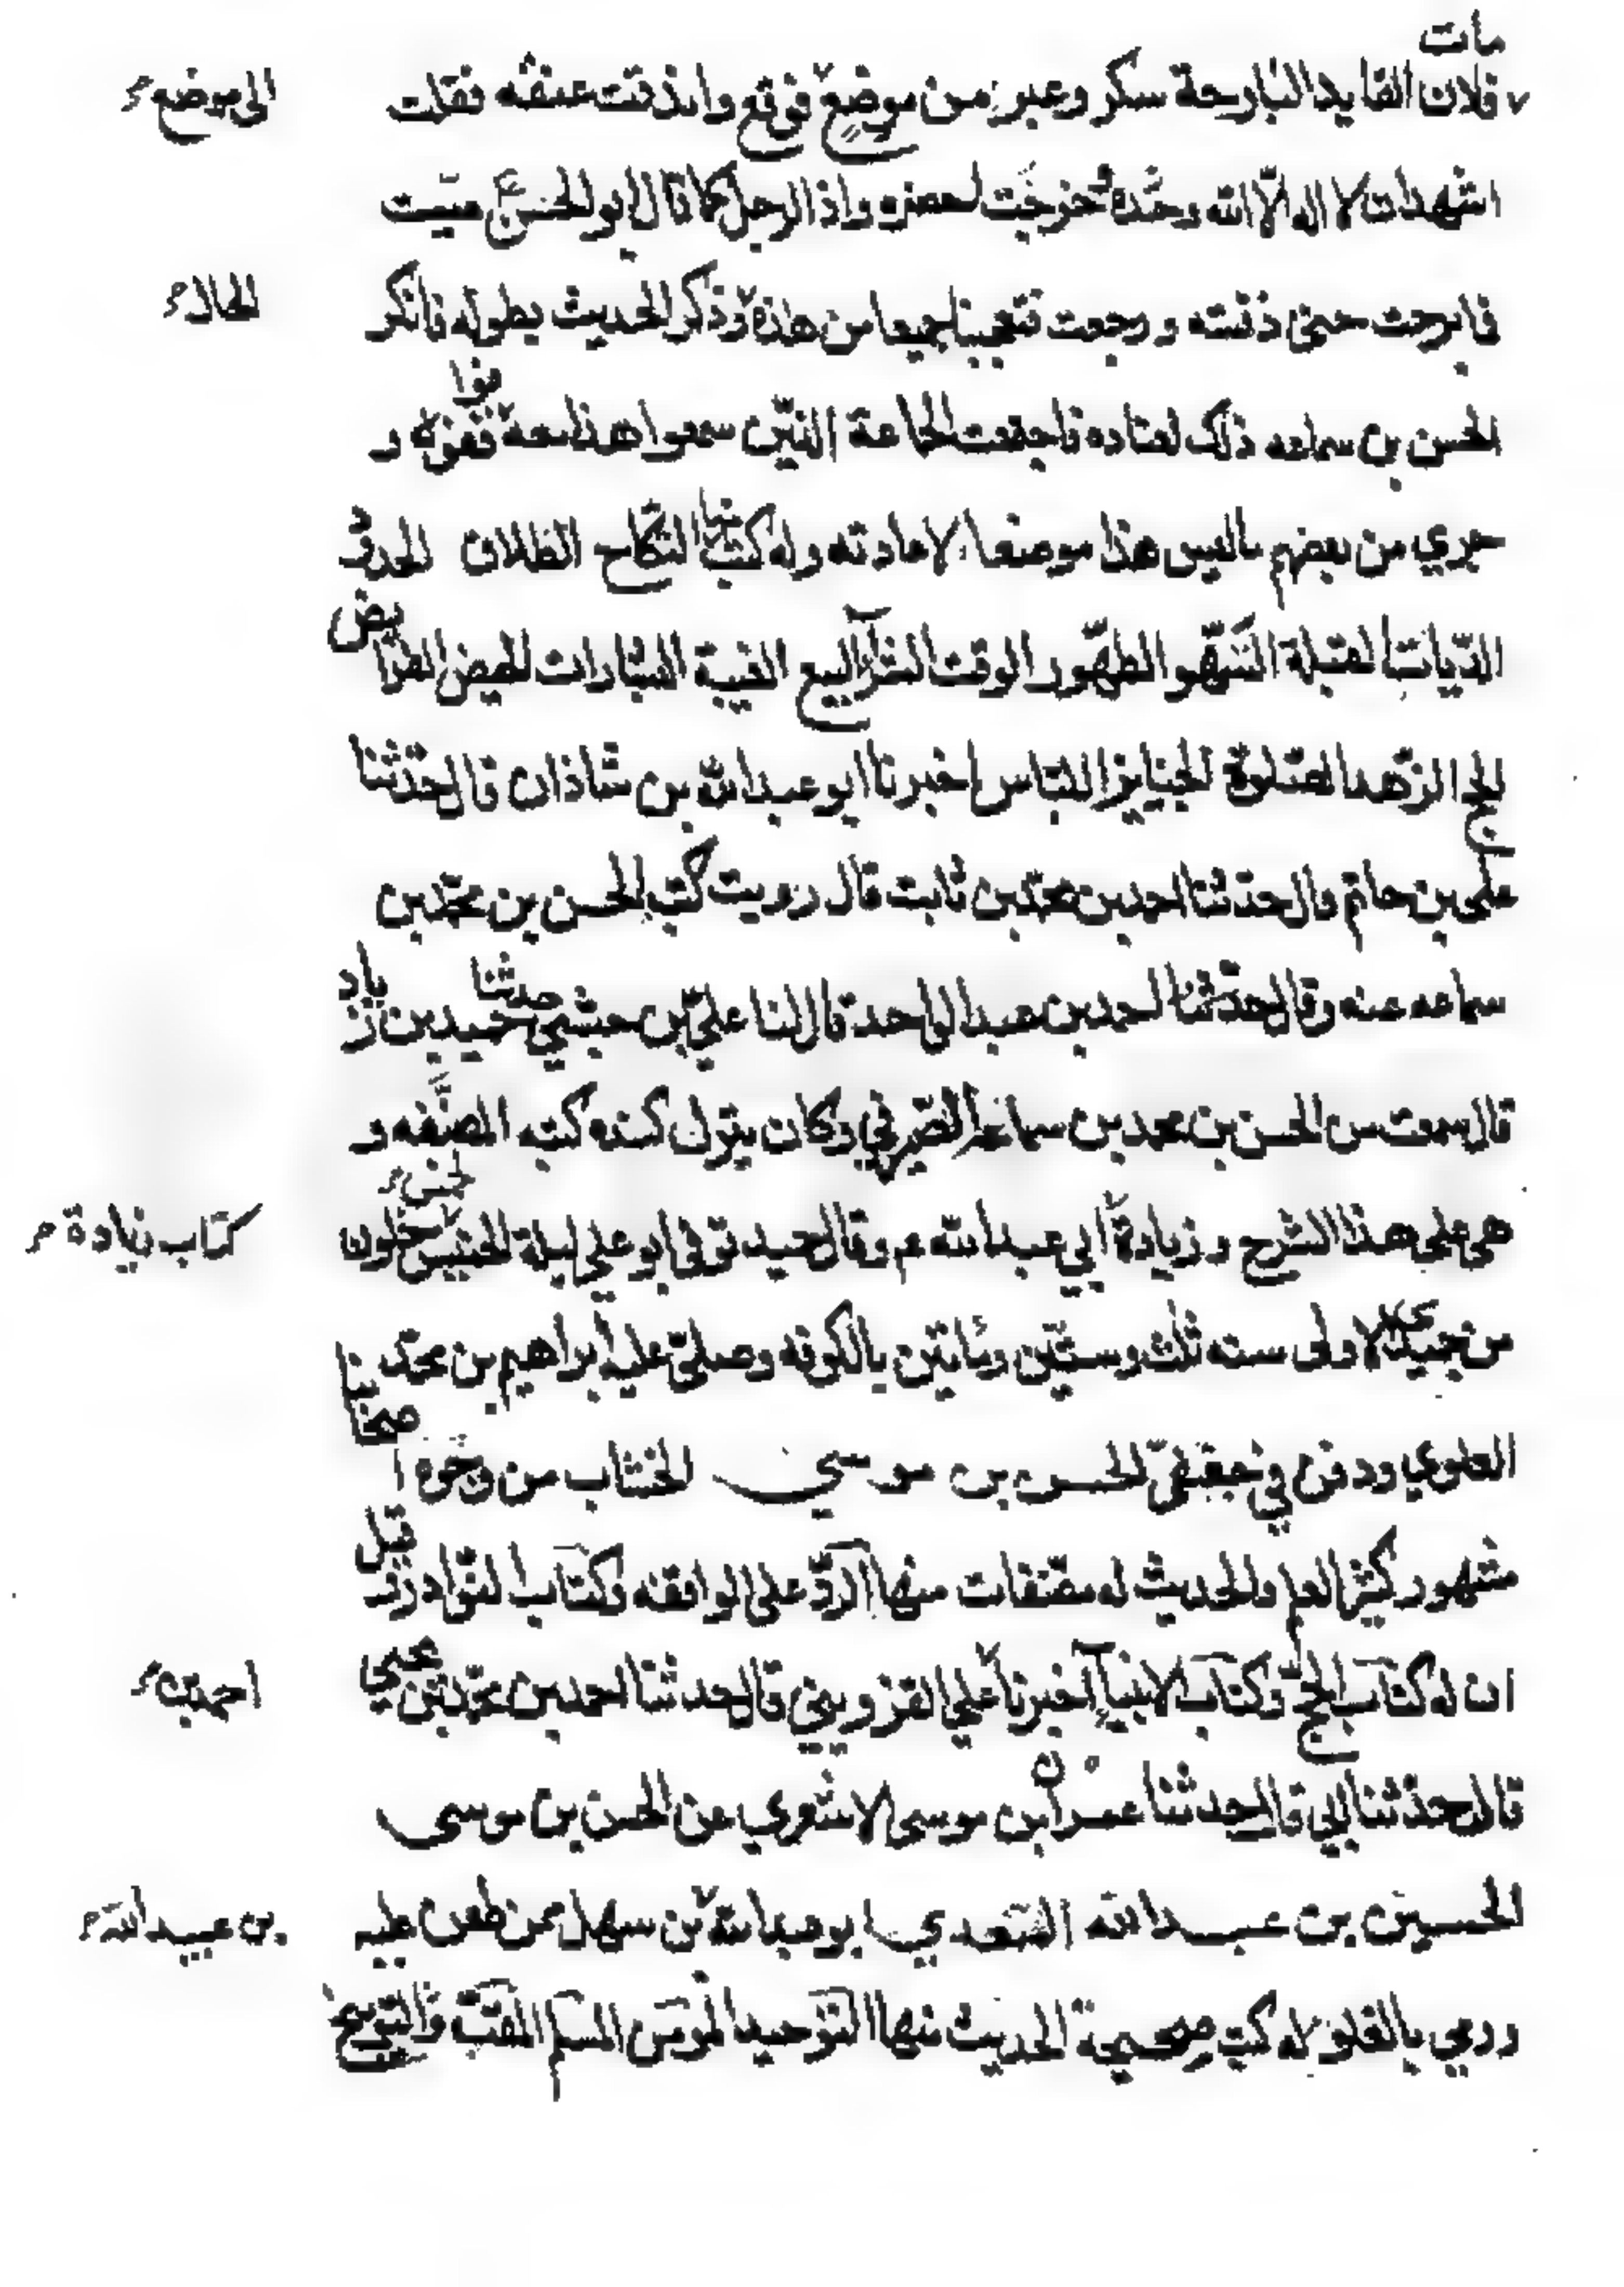 مات
فلان القايد البارحة سكر وعبر من موضع فوقع واندقت عنقه فقلت الى موضع
اشهد ان لا اله الا الله وحده فخرجت لحضره واذا الرجل كما قال ابو الحسن ع ميت
فما برحت حتى دفنته ورجعت فتعجبنا جميعا من هذا وذكر الحديث بطوله فانكر الحال
الحسن بن سماعه ذلك لعناده فاجتمعت الجماعة الذين سمعوا هذا معه فوقفوا و
جري من بعضهم ما ليس هذا موضعا لاعادته وله كتب منها النكاح الطلاق الحدود
الديات القبلة السهو الطهور الوقت الشرآ البيع الغيبة البشارات الحيض الفرائض
الحج الزهد الصلوة الجنايز اللباس اخبرنا ابو عبد الله بن شاذان قال حدثنا
علي بن حاتم قال حدثنا احمد بن محمد بن ثابت قال رويت كتب الحسن بن محمد بن
سماعه عنه وقال حدثنا احمد بن عبد الواحد قال لنا علي بن حبشي حدثنا حميد بن زياد
قال سمعت من الحسن بن محمد بن سماعة الصيرفي وكان ينزل كنده كتبه المصنفه و
هى على هذا الشرح و زيادة ابي عبد الله م وقال حميد توفى ابو علي ليلة الخميس لخمس خلون كتاب زيادة
من جميدى الاولى سنه ثلث وستين ومايتين بالكوفه وصلى عليه ابراهيم بن محمد
العلوي ودفن في جعفى الحسن بن موسى الخشاب من وجوه اصحابنا
مشهور كثير العلم والحديث له مصنفات منها الرد على الواقفه وكتاب النوادر وقيل
ان له كتاب الحج وكتاب الانبيآء اخبرنا علي القزويني قال حدثنا احمد بن محمد بن يحيى احمد بن
قال حدثنا ابي قال حدثنا عمران بن موسى الاشعري عن الحسن بن موسى
الحسين بن عبد الله السعدي ابو عبد الله بن سهل ممن طعن عليه بن عبيد الله
ورمي بالغلو له كتب صحيحة الحديث منها التوحيد المؤمن المسلم المقت والتوبيخ